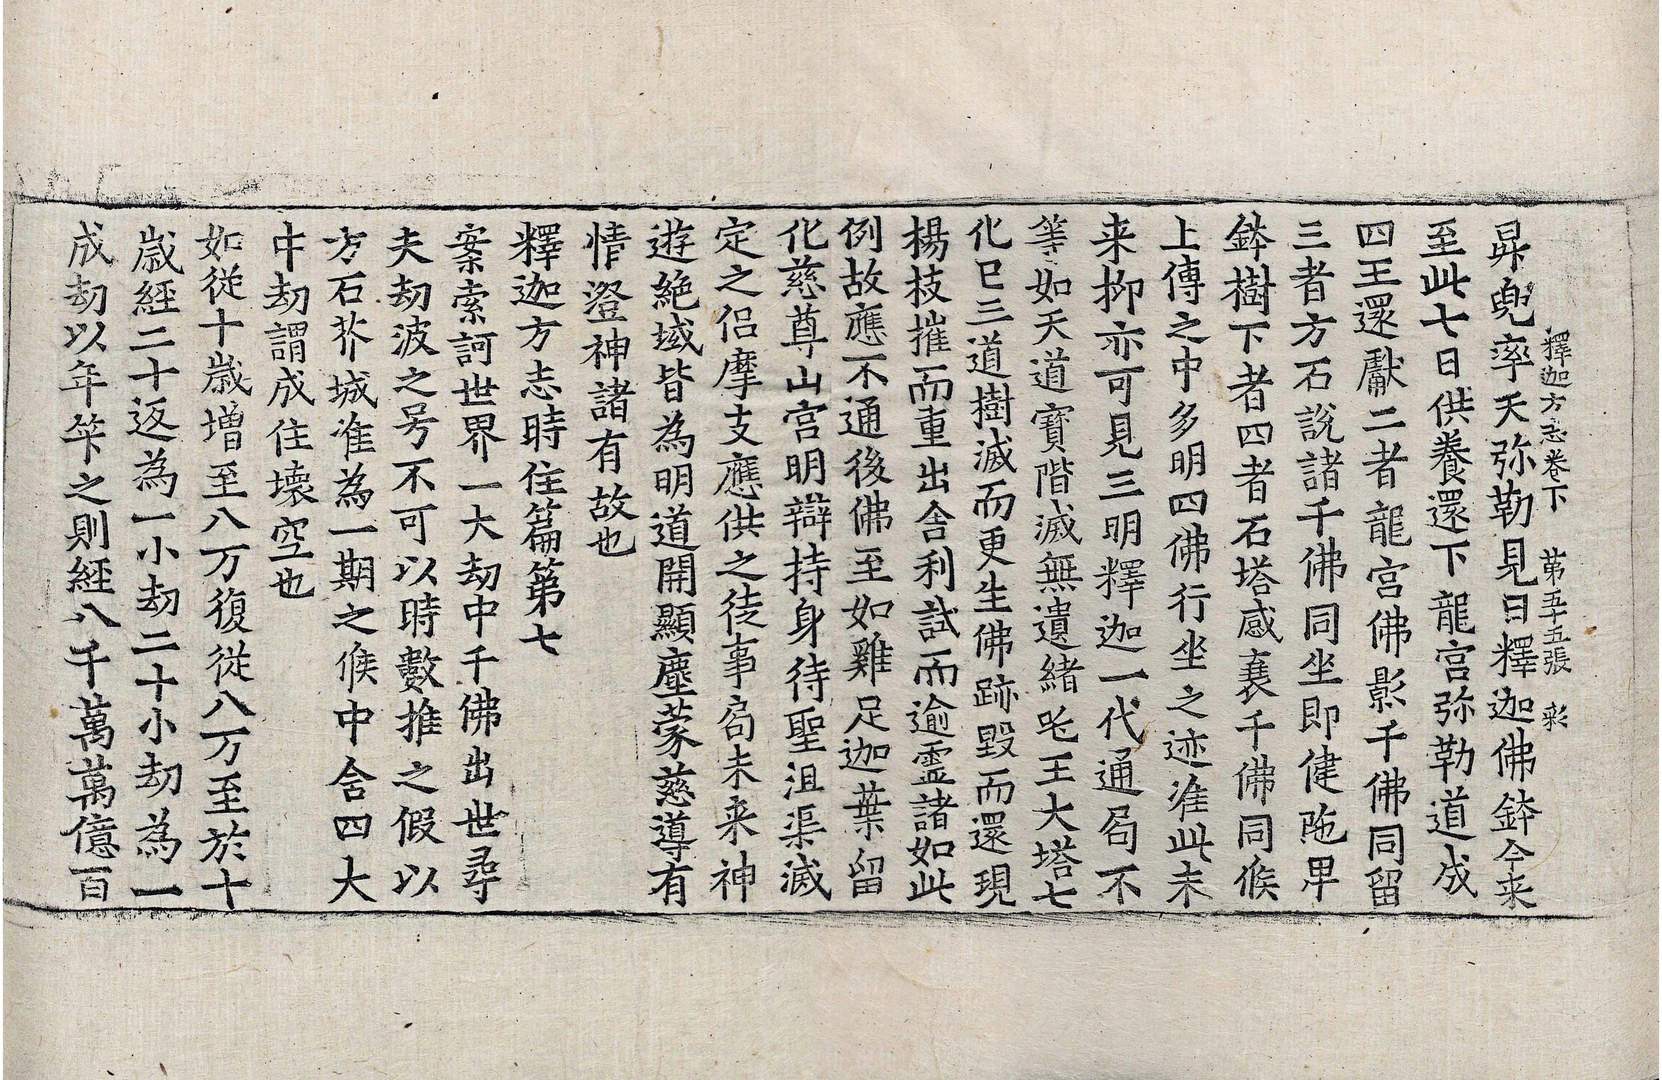 釋迦方志卷下　第五十五張　彩
昇兜率天弥勒見曰釋迦佛鉢今来
至此七日供養還下龍宮弥勒道成
四王還獻二者龍宮佛影千佛同留
三者方石說諸千佛同坐即健陁卑
鉢樹下者四者石塔感裹千佛同候
上傳之中多明四佛行坐之迹准此未
来抑亦可見三明釋迦一代通局不
等如天道寶階滅無遺緒咤王大塔七
化巳三道樹滅而更生佛跡毀而還現
楊枝摧而重出舍利試而逾靈諸如此
例故應不通後佛至如雞足迦葉留
化慈尊山宮明辯持身待聖沮渠滅
定之侣摩支應供之徒事局未来神
遊絶域皆為明道開顯塵蒙慈導有
情澄神諸有故也
釋迦方志時住篇第七
案索訶世界一大劫中千佛出世尋
夫劫波之号不可以時數推之假以
方石芥城准為一期之候中舍四大
中劫謂成住壞空也
如從十歲增至八万復從八万至於十
歲經二十返為一小劫二十小劫為一
成劫以年笇之則經八千萬萬億百